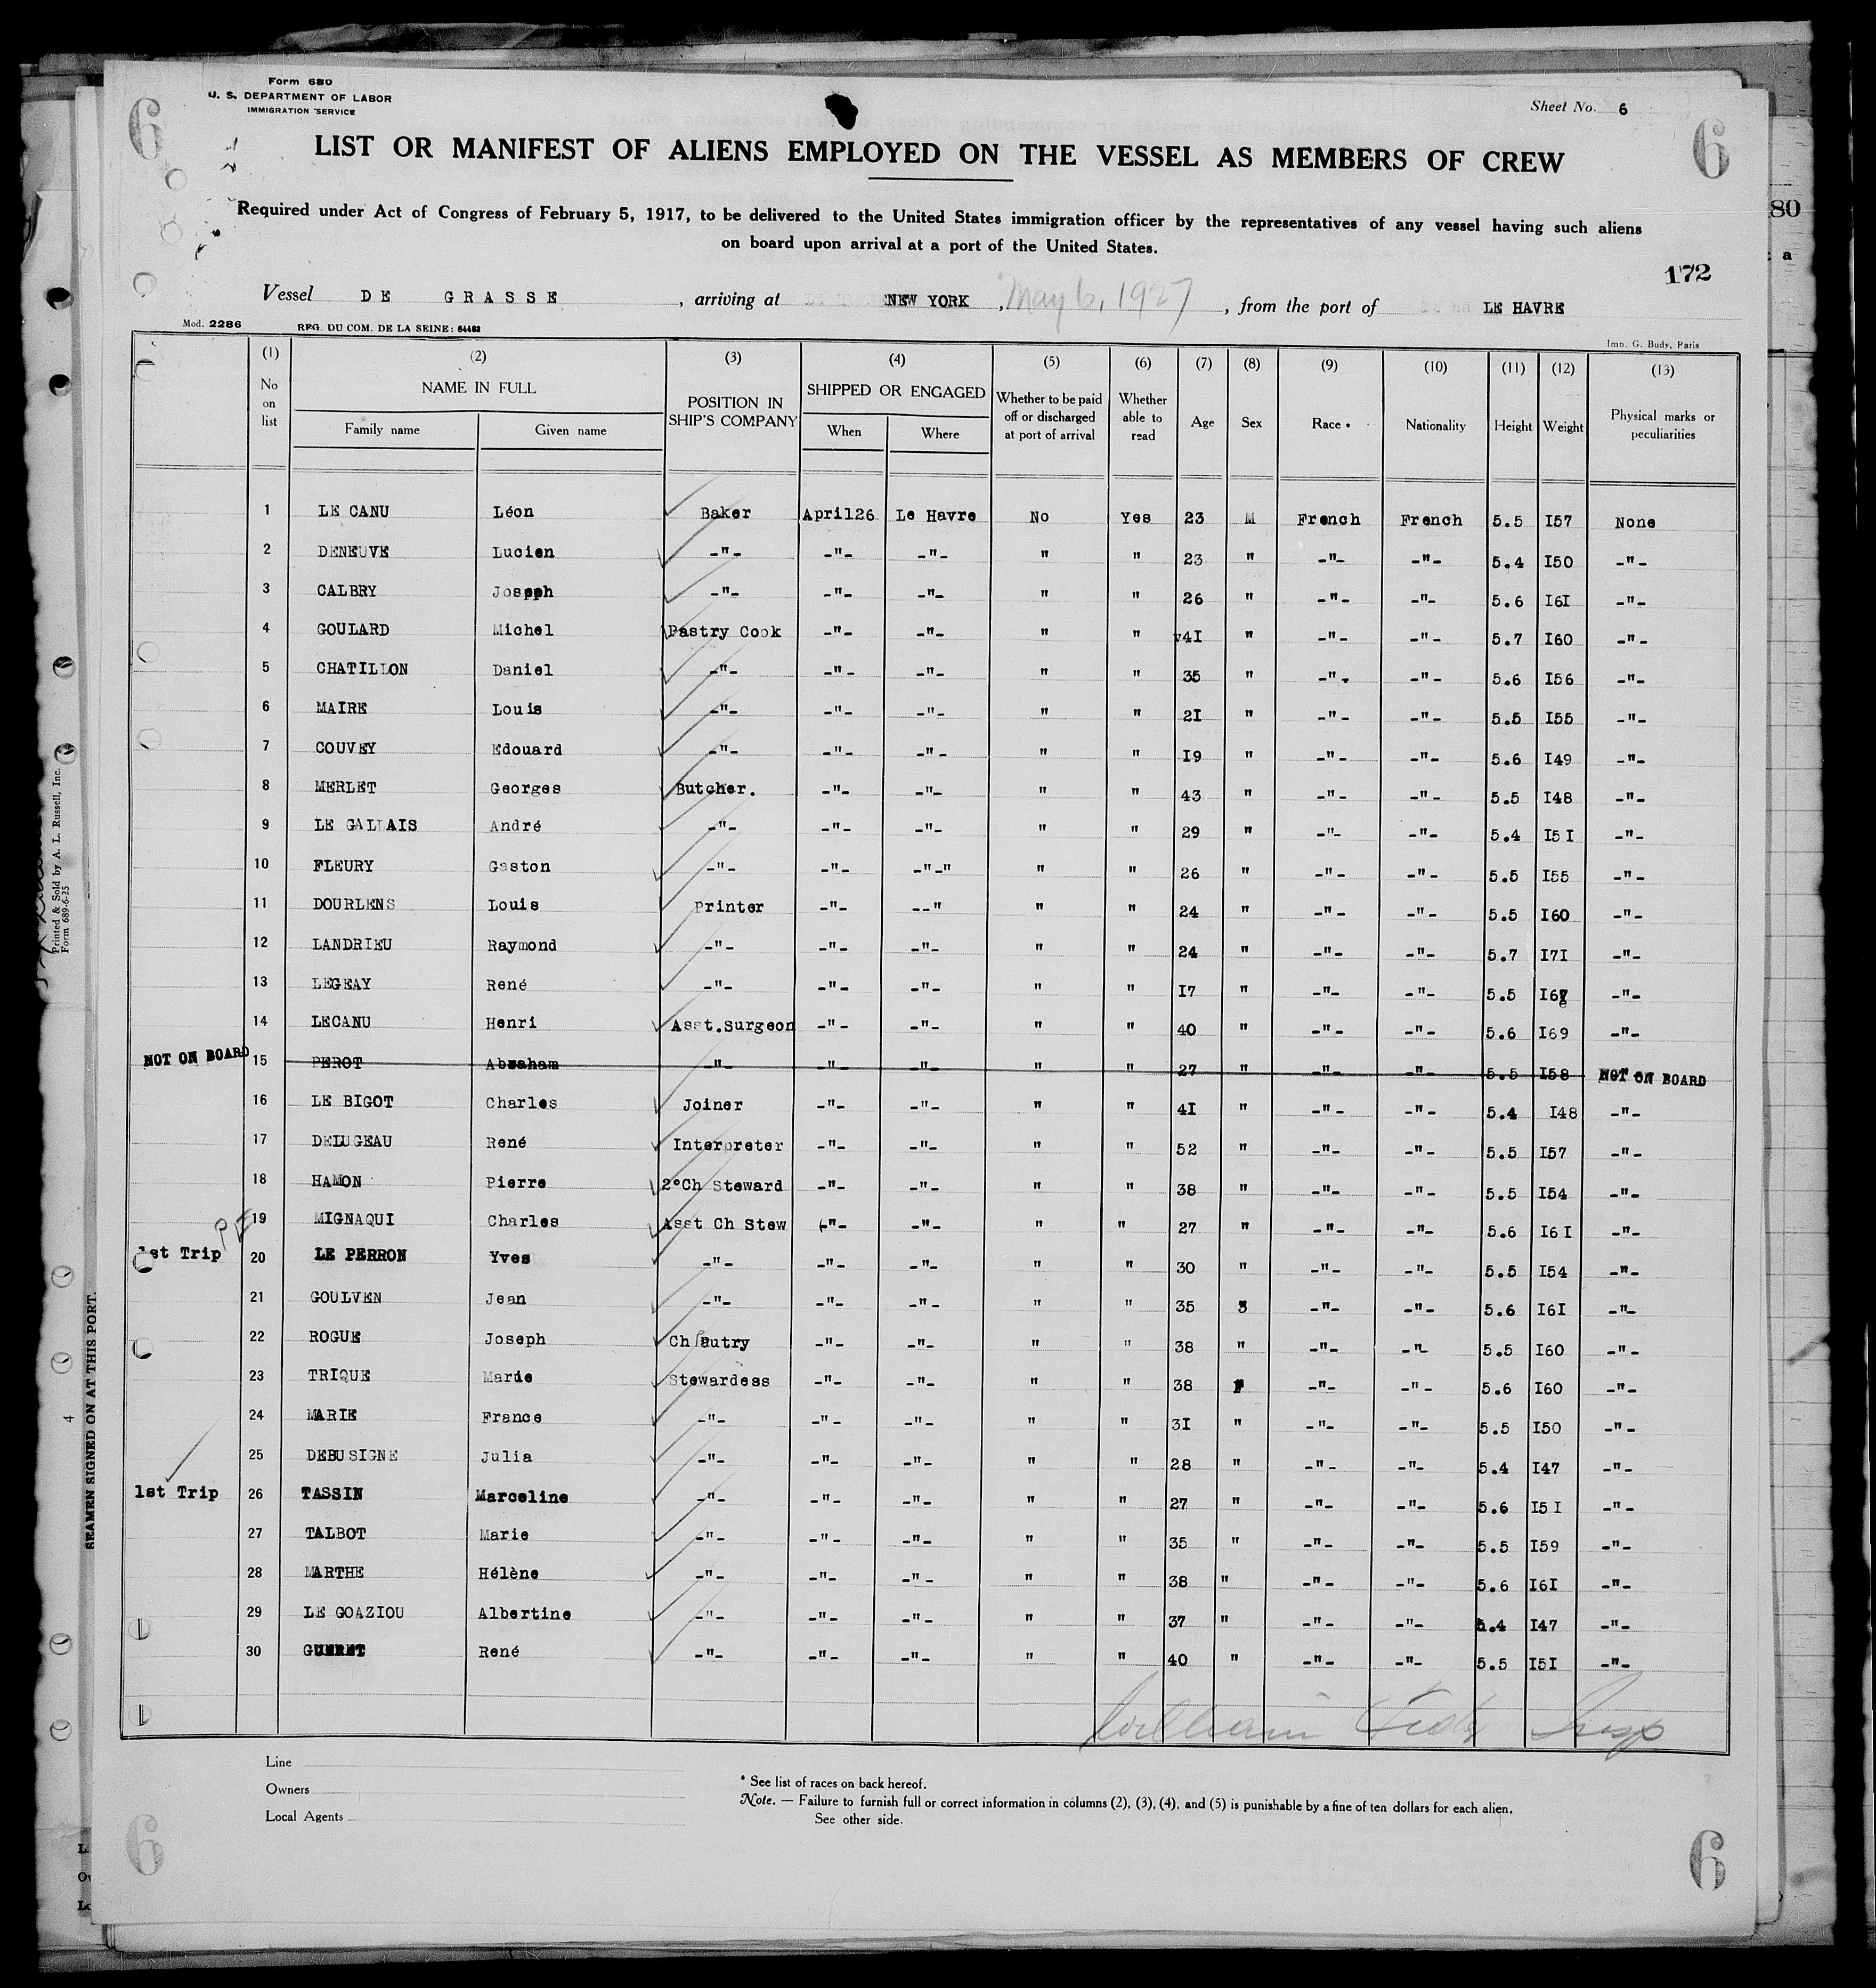 Form 680
U. S. DEPARTMENT OF LABOR
IMMIGRATION SERVICE
Sheet No. 6
6
6
LIST OR MANIFEST OF ALIENS EMPLOYED ON THE VESSEL AS MEMBERS OF CREW
Required under Act of Congress of February 5, 1917, to be delivered to the United States immigration officer by the representatives of any vessel having such aliens
on board upon arrival at a port of the United States.
172
Vessel DE GRASSE , arriving at NEW YORK , May 6, 1927 , from the port of LE HAVRE
Mod. 2286 REG. DU COM. DE LA SEINE: 64483 Imp. G. Budy, Paris
(1) (2) (3) (4) (5) (6) (7) (8) (9) (10) (11) (12) (13)
No on list NAME IN FULL Family name Given name POSITION IN SHIP'S COMPANY SHIPPED OR ENGAGED When Where Whether to be paid off or discharged at port of arrival Whether able to read Age Sex Race * Nationality Height Weight Physical marks or peculiarities
1 LE CANU Léon Baker April26 Le Havre No Yes 23 M French French 5.5 I57 None
2 DENEUVE Lucien -"- -"- -"- " " 23 " -"- -"- 5.4 I50 -"-
3 CALBRY Joseph -"- -"- -"- " " 26 " -"- -"- 5.6 I6I -"-
4 GOULARD Michel Pastry Cook -"- -"- " " 4I " -"- -"- 5.7 I60 -"-
5 CHATILLON Daniel -"- -"- -"- " " 35 " -"- -"- 5.6 I56 -"-
6 MAIRE Louis -"- -"- -"- " " 2I " -"- -"- 5.5 I55 -"-
7 COUVEY Edouard -"- -"- -"- " " I9 " -"- -"- 5.6 I49 -"-
8 MERLET Georges Butcher. -"- -"- " " 43 " -"- -"- 5.5 I48 -"-
9 LE GALLAIS André -"- -"- -"- " " 29 " -"- -"- 5.4 I5I -"-
10 FLEURY Gaston -"- -"- -"-" " " 26 " -"- -"- 5.5 I55 -"-
11 DOURLENS Louis Printer -"- --" " " 24 " -"- -"- 5.5 I60 -"-
12 LANDRIEU Raymond -"- -"- -"- " " 24 " -"- -"- 5.7 I7I -"-
13 LEGEAY René -"- -"- -"- " " I7 " -"- -"- 5.5 -"-
14 LECANU Henri Asst.Surgeon -"- -"- " " 40 " -"- -"- 5.6 I69 -"-
NOT ON BOARD 15 PEROT Abraham -"- -"- -"- " " 27 " -"- -"- 5.5 I58 NOT ON BOARD
16 LE BIGOT Charles Joiner -"- -"- " " 4I " -"- -"- 5.4 I48 -"-
17 DELUGEAU René Interpreter -"- -"- " " 52 " -"- -"- 5.5 I57 -"-
18 HAMON Pierre 2°Ch Steward -"- -"- " " 38 " -"- -"- 5.5 I54 -"-
19 MIGNAQUI Charles Asst Ch Stew -"- -"- " " 27 " -"- -"- 5.6 I6I -"-
1st Trip 20 LE PERRON Yves -"- -"- -"- " " 30 " -"- -"- 5.5 I54 -"-
21 GOULVEN Jean -"- -"- -"- " " 35 -"- -"- 5.6 I6I -"-
22 ROGUE Joseph -"- -"- " " 38 " -"- -"- 5.5 I60 -"-
23 TRIQUE Marie Stewardess -"- -"- " " 38 F -"- -"- 5.6 I60 -"-
24 MARIE France -"- -"- -"- " " 3I " -"- -"- 5.5 I50 -"-
25 DEBUSIGNE Julia -"- -"- -"- " " 28 " -"- -"- 5.4 I47 -"-
1st Trip 26 TASSIN Marceline -"- -"- -"- " " 27 " -"- -"- 5.6 I5I -"-
27 TALBOT Marie -"- -"- -"- " " 35 " -"- -"- 5.5 I59 -"-
28 MARTHE Hélène -"- -"- -"- " " 38 " -"- -"- 5.6 I6I -"-
29 LE GOAZIOU Albertine -"- -"- -"- " " 37 " -"- -"- 5.4 I47 -"-
30 GUERET René -"- -"- -"- " " 40 " -"- -"- 5.5 I5I -"-
William Insp
Line
Owners
Local Agents
* See list of races on back hereof.
Note. — Failure to furnish full or correct information in columns (2), (3), (4), and (5) is punishable by a fine of ten dollars for each alien.
See other side.
6
6
Printed & Sold by A. L. Russell, Inc.
Form 689-6-25
SEAMEN SIGNED ON AT THIS PORT.
4
80
a